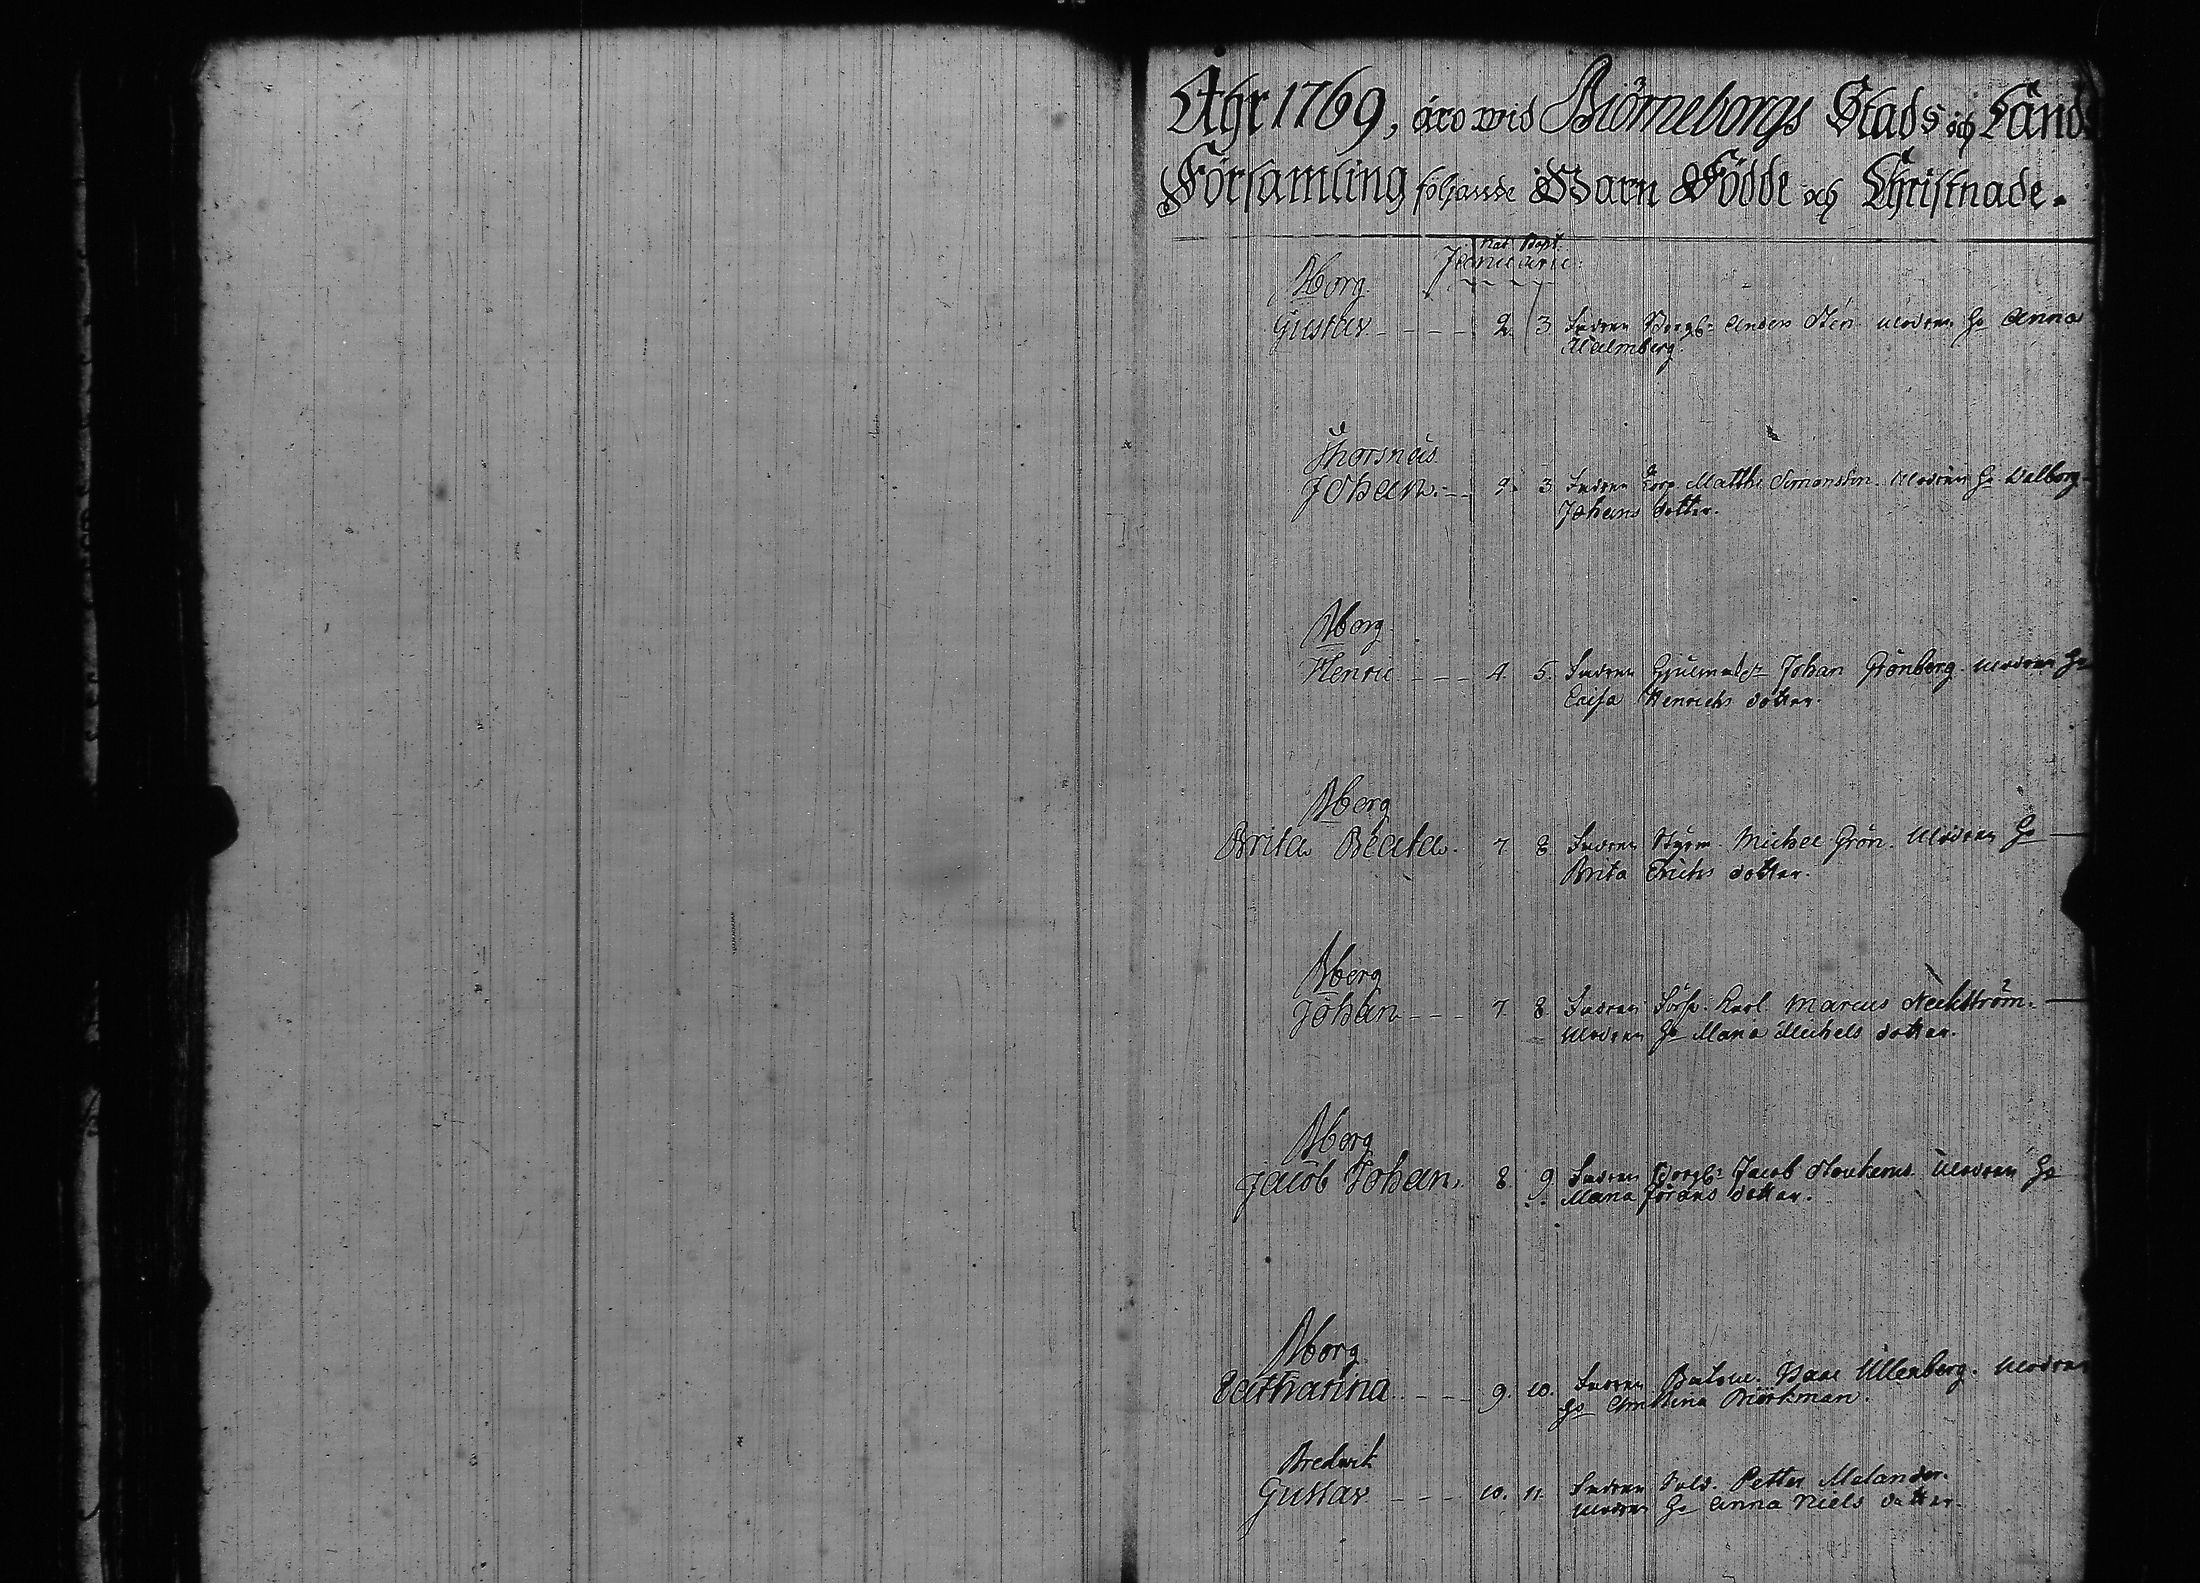 Åhr 1769, äro wid Biörneborgs Stads och Länds
Församling följande Barn Födde och Christnade.
Nat Bapt.
Januarii
Bborg
Gustav - - - - 2. 3 Fadren Borgl: Anders Stén Modren H: Anna
Malmberg.
Thorsnäs
Johan. - - 2. 3 Fadren Torp Matths Simonsson. Modren H: Walborg
Johans dotter.
Bborg
Henric - - - 4. 5. Fadren Johan Grönberg. Modren H:
Caisa Henrichs dotter.
Bborg
Brita Beata. 7 8 Fadren Styrm. Michel Grön. Modren H:
Brita Erichs dotter.
Bborg
Johan - - - 7. 8. Fadren Karl Marcus Neckström.
Modren H: Maria Michels dotter.
Bborg
Jacob Johan, 8 9 Fadren Borgl: Jacob Modren H:
Maria Jörans dotter.
Bborg
Catharina - - - 9. 10. Fadren Isaac Ullenberg. Modren
H: Christina Biörkman.
Bredwik
Gustav - - - 10. 11. Fadren Sold. Petter Melander.
Modren H: Anna Niels dotter.